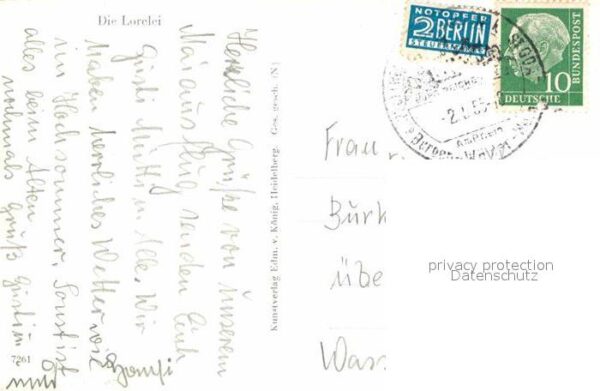 Die Lorelei
Herzliche Grüße von unserem
Maiausflug senden Euch
Gusti Mutti u Alle. Wir
haben herrliches Wetter wie
im Hochsommer. Sonst ist
alles beim Alten
nochmals Gruß Gusti u
7261
Kunstverlag Edm. v. König, Heidelberg Ges. gesch. (N)
NOTOPFER
2 BERLIN
STEUERMARKE
10
DEUTSCHE
BUNDESPOST
Am Rhein
Frau
Burk
übe
Was
privacy protection
Datenschutz